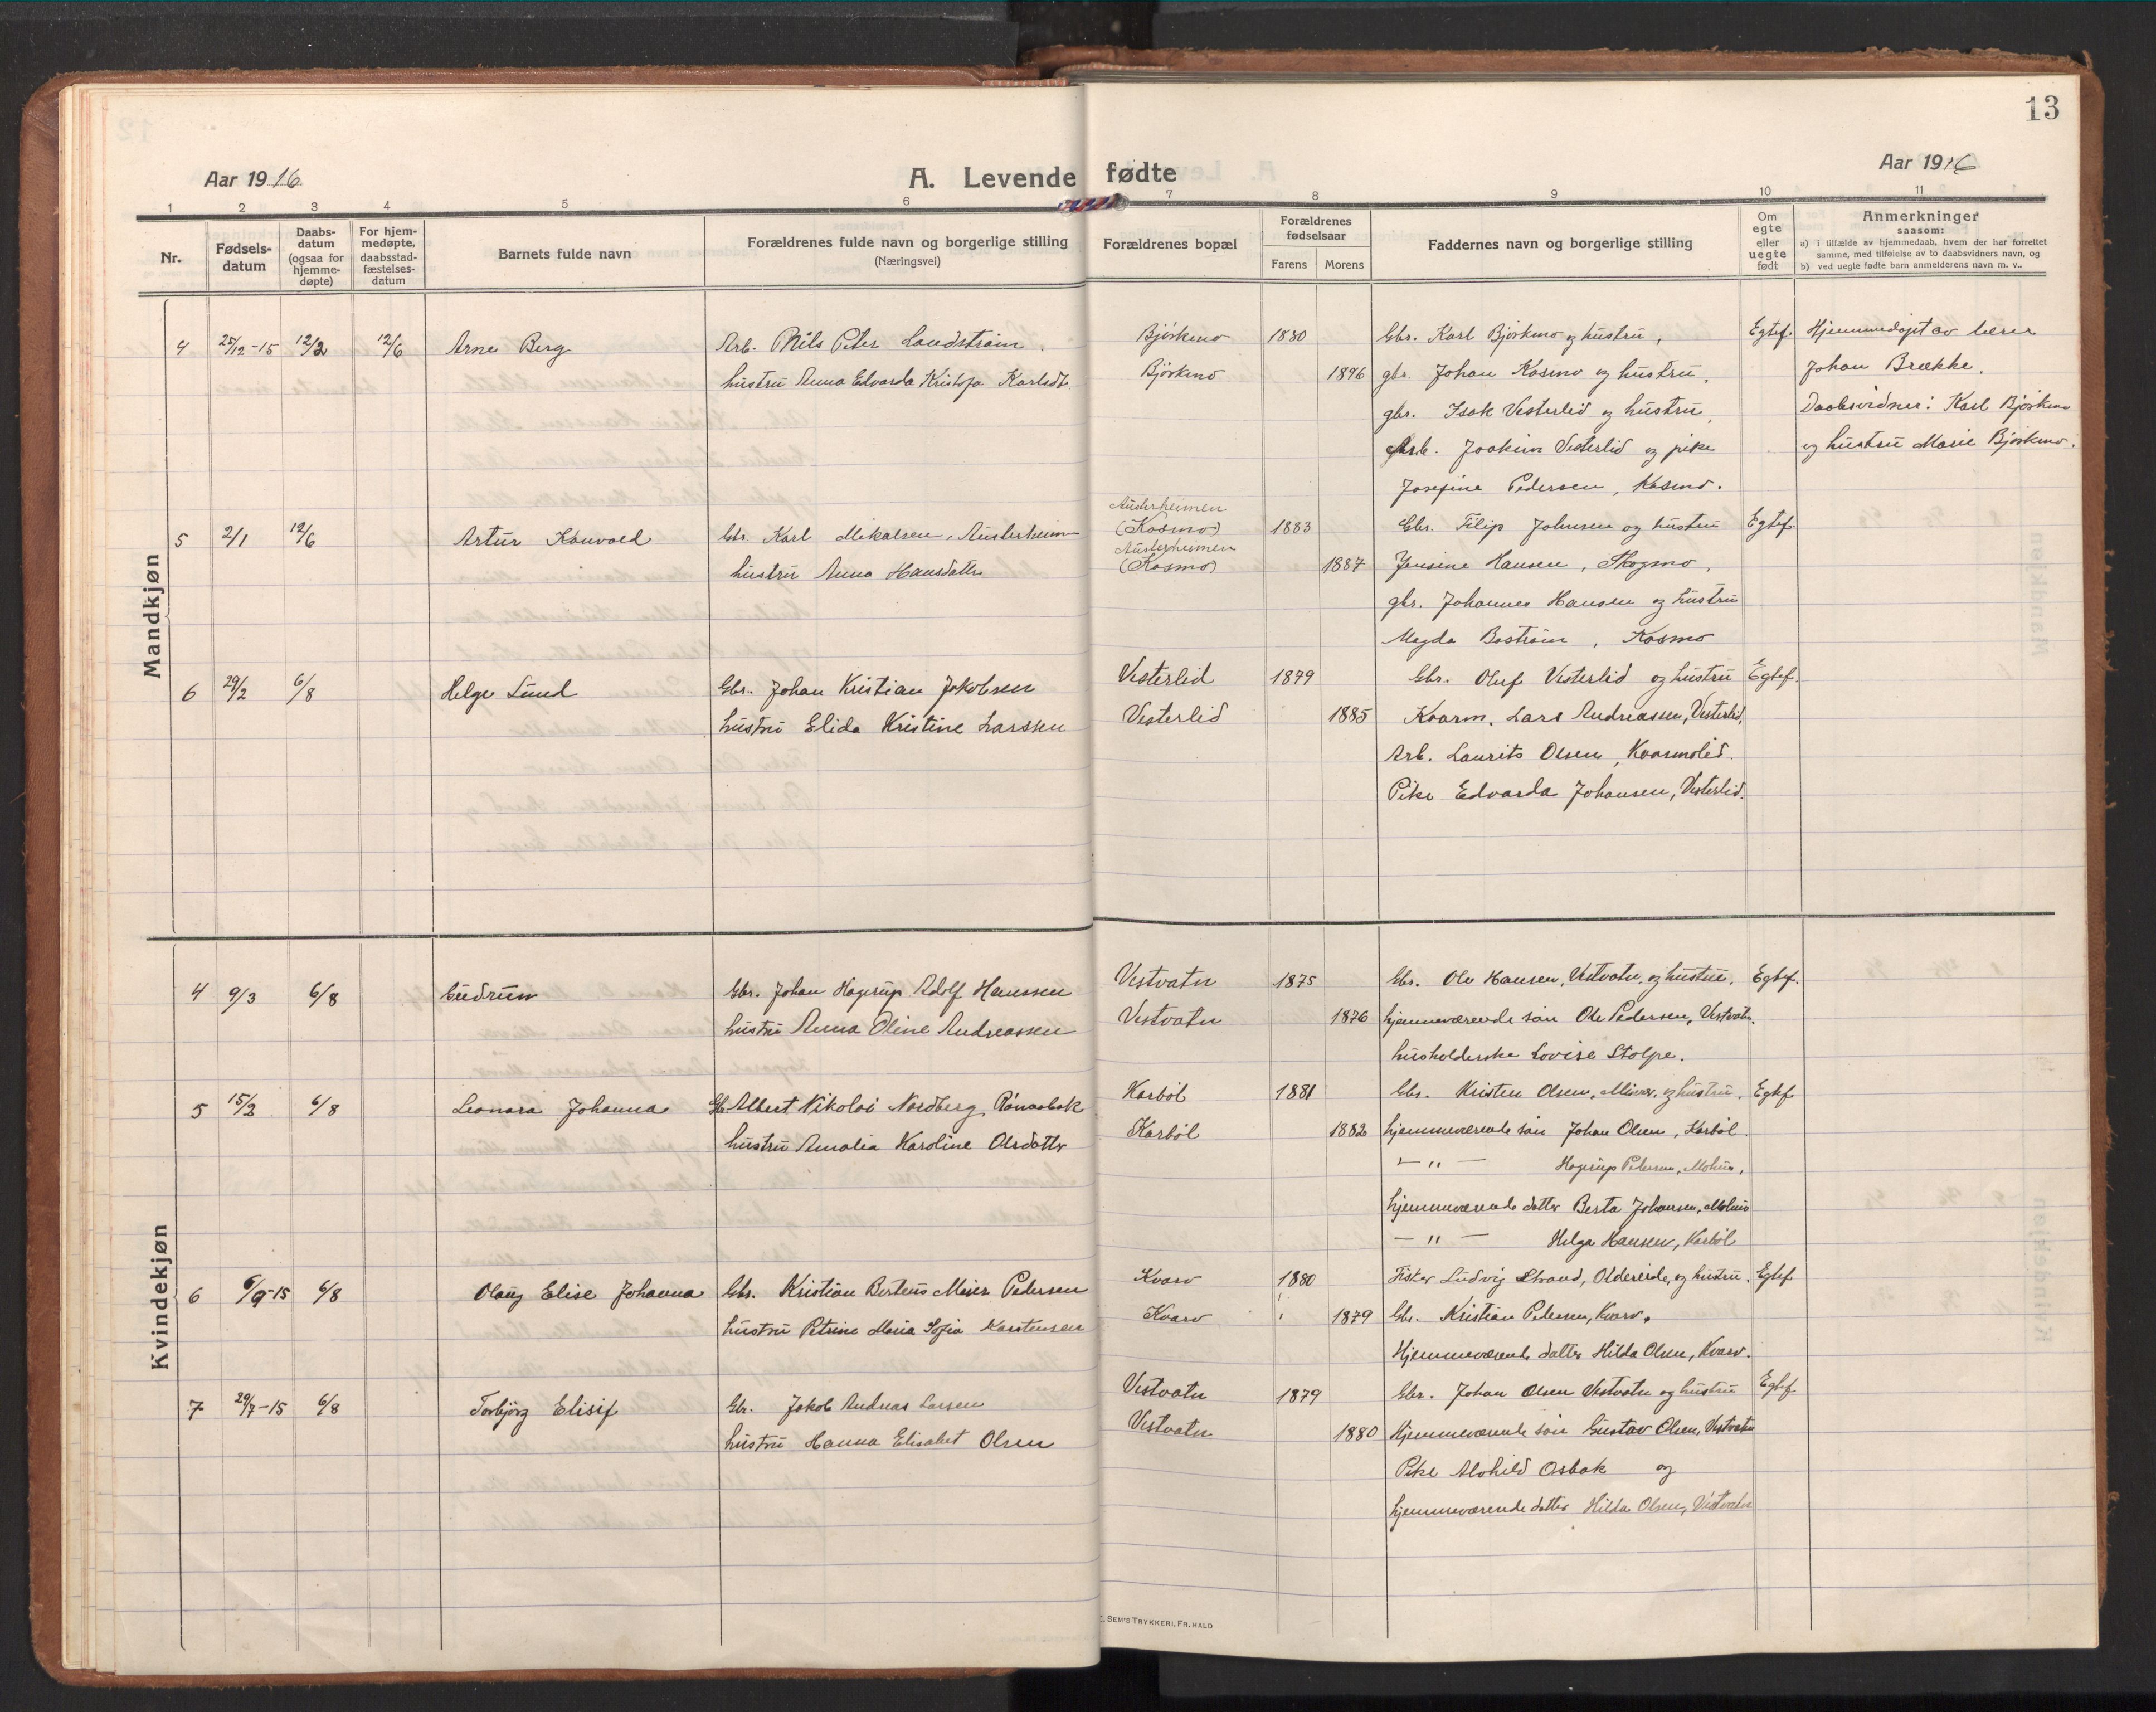 13
Aar 1916
A. Levende fødte
Aar 1916
1 2 3 4 5 6 7 8 9 10 11
Nr.
Fødsels-
datum
Daabs-
datum
(ogsaa for
hjemme-
døpte)
For hjem-
medøpte,
daabsstad-
fæstelses-
datum
Barnets fulde navn
Forældrenes fulde navn og borgerlige stilling
(Næringsvei)
Forældrenes bopæl
Forældrenes
fødselsaar
Farens Morens
Faddernes navn og borgerlige stilling
Om
egte
eller
uegte
født
Anmerkninger
saasom:
a) i tilfælde av hjemmedaab, hvem der har forrettet
samme, med tilføielse av to daabsvidners navn, og
b) ved uegte fødte barn anmelderens navn m. v.
Mandkjøn
4 25/12-15 12/2 12/6 Arne Berg Arb. Nils Peter Landstrøm. Bjørkmo 1880 Gbr. Karl Bjørkmo og hustru, Egtef. Hjemmedøpt av lærer
hustru Anna Edvarda Kristofa Karlsdt. Bjørkmo 1896 gbr. Johan Kosmo og hustru, Johan Brække.
gbr. Isak Vesterlid og hustru, Daabsvidner: Karl Bjørkmo
Arb. Joakim Vesterlid og pike og hustru Marie Bjørkmo.
Josefine Pedersen, Kosmo.
Austerheimen
5 2/1 12/6 Artur Konvald Gbr. Karl Mikalsen, Austerheim (Kosmo) 1883 Gbr. Filip Johnsen og hustru Egtef.
Austerheimen
hustru Anna Hansdatter (Kosmo) 1887 Jensine Hansen, Skogmo,
gbr. Johannes Hansen og hustru
Magda Bostrøm, Kosmo
6 29/2 6/8 Helge Lund Gbr. Johan Kristian Jakobsen Vesterlid 1879 Gbr. Oluf Vesterlid og hustru Egtef.
hustru Elida Kristine Larssen Vesterlid 1885 Kaarm. Lars Andreassen, Vesterlid,
Arb. Laurits Olsen, Kvarmolid.
Pike Edvarda Johansen, Vesterlid.
Kvindekjøn
4 9/3 6/8 Gudrun Gbr. Johan Hagerup Adolf Hanssen Vestvatn 1875 Gbr. Ole Hansen, Vestvatn, og hustru. Egtef.
hustru Anna Oline Andreassen Vestvatn 1876 hjemmeværende søn Ole Pedersen, Vestvatn.
husholderske Lovise Stolpe.
5 15/3 6/8 Leonora Johanna Gbr. Albert Nikolai Nordberg, Karbøl 1881 Gbr. Kristen Olsen, og hustru, Egtef
hustru Amalia Karoline Olsdatter Karbøl 1882 hjemmeværende søn Johan Olsen, Karbøl.
— " — Hagerup Pedersen,
hjemmeværende datter Berta Johansen,
— " — Helga Hansen, Karbøl
6 6/9-15 6/8 Olaug Elise Johanna Gbr. Kristian Berteus Meier Pedersen Kvarv 1880 Fisker Ludvig Strand, Oldereide, og hustru. Egtef
hustru Petrine Maria Sofia Karstensen Kvarv 1879 Gbr. Kristian Pedersen, Kvarv.
Hjemmeværende datter Hilda Olsen, Kvarv.
7 29/7-15 6/8 Torbjørg Elisif Gbr. Jakob Andreas Larsen Vestvatn 1879 Gbr. Johan Olsen Vestvatn og hustru Egtef
hustru Hanna Elisabet Olsen Vestvatn 1880 Hjemmeværende søn Gustav Olsen, Vestvatn
Pike Alvhild Osbak og
hjemmeværende datter Hilda Olsen, Vestvatn
SEM'S TRYKKERI, FR.HALD